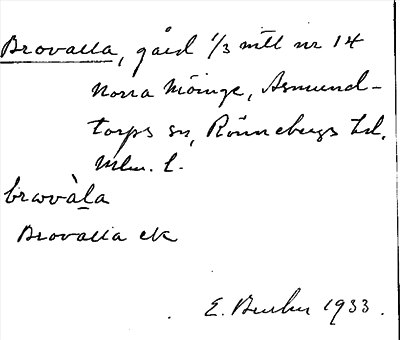 Brovalla, gård 1/3 mtl nr 14
Norra Möinge, Asmund-
torps sn, Rönnebergs hd,
Mlm. l.
brωvàla
Brovalla ek
E. 1933.